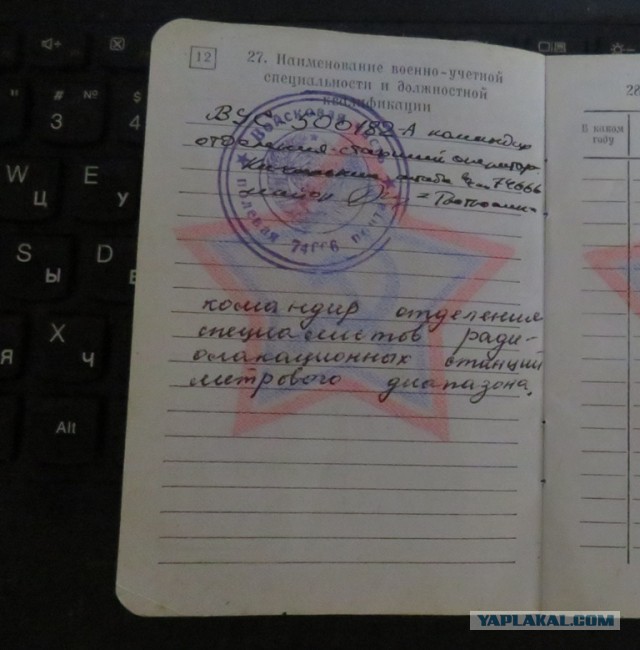 12
27. Наименование военно-учетной
специальности и должностной
квалификации
ВУС 500182-А командир
отделения-старший оператор
Начальник штаба 74666
майор
Войсковая часть
полевая почта 74666
командир отделения
специалистов ради-
олакационных станций
метрового диапазона.
28
В каком
году
# № $
3 4
W E
Ц У
S D
Ы
X
Ч
Я
Alt
YAPLAKAL.COM